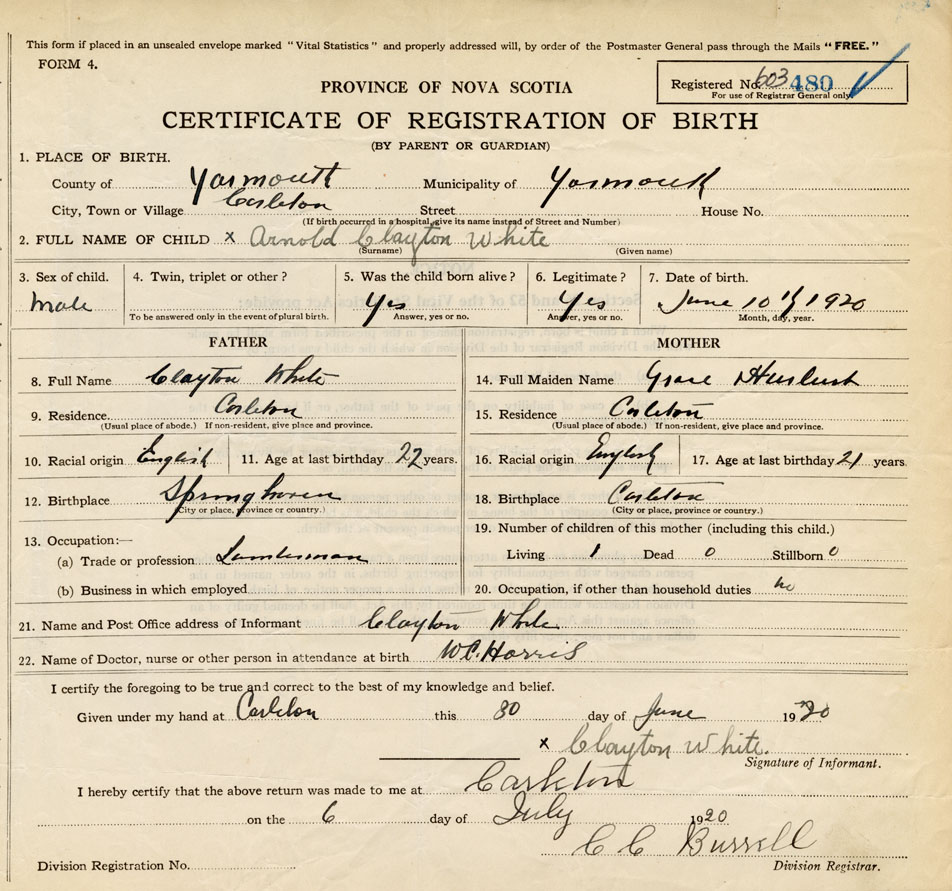 This form if placed in an unsealed envelope marked "Vital Statistics" and properly addressed will, by order of the Postmaster General pass through the Mails "FREE."
FORM 4.
PROVINCE OF NOVA SCOTIA
Registered No. 603 480
For use of Registrar General only
CERTIFICATE OF REGISTRATION OF BIRTH
(BY PARENT OR GUARDIAN)
1. PLACE OF BIRTH.
County of Yarmouth Municipality of Yarmouth
City, Town or Village Carleton Street House No.
(If birth occurred in a hospital, give its name instead of Street and Number)
2. FULL NAME OF CHILD x Arnold Clayton White
(Surname) (Given name)
3. Sex of child. 4. Twin, triplet or other? 5. Was the child born alive? 6. Legitimate? 7. Date of birth.
Male Yes Yes June 10th 1920
To be answered only in the event of plural birth. Answer, yes or no. Answer, yes or no. Month, day, year.
FATHER MOTHER
8. Full Name Clayton White 14. Full Maiden Name Grace
9. Residence Carleton 15. Residence Carleton
(Usual place of abode.) If non-resident, give place and province. (Usual place of abode.) If non-resident, give place and province.
10. Racial origin English 11. Age at last birthday 22 years. 16. Racial origin English 17. Age at last birthday 21 years
12. Birthplace Springhaven 18. Birthplace Carleton
(City or place, province or country.) (City or place, province or country.)
13. Occupation:— 19. Number of children of this mother (including this child.)
(a) Trade or profession Lumberman Living 1 Dead 0 Stillborn 0
(b) Business in which employed 20. Occupation, if other than household duties no
21. Name and Post Office address of Informant Clayton White
22. Name of Doctor, nurse or other person in attendance at birth W.C. Harris
I certify the foregoing to be true and correct to the best of my knowledge and belief.
Given under my hand at Carleton this 30 day of June 1920
x Clayton White.
Signature of Informant.
I hereby certify that the above return was made to me at Carleton
on the 6 day of July 1920
C C Burrell
Division Registration No. Division Registrar.